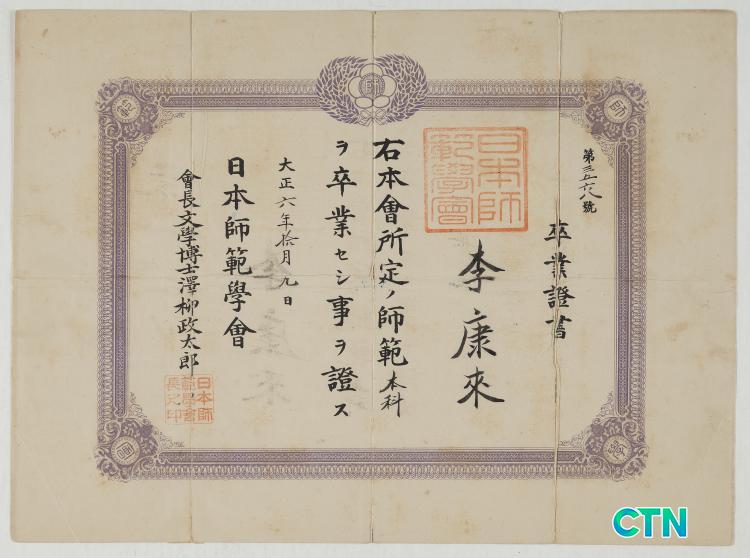 第三五六八號
卒業證書
李康來
日本師範學會
右本會所定ノ師範本科
ヲ卒業セシ事ヲ證ス
大正六年拾月九日
日本師範學會
會長文學博士澤柳政太郎
日本師範學會長之印
CTN